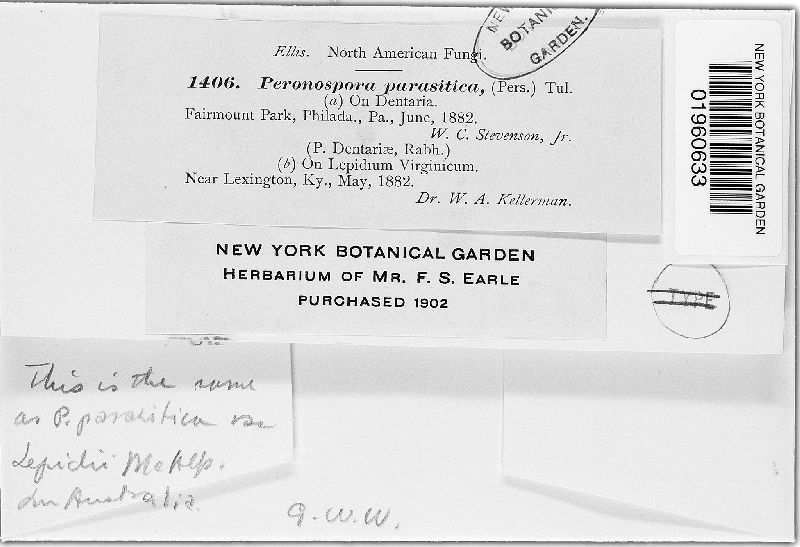 NEW
BOTANICAL
GARDEN.
Ellis. North American Fungi.
1406. Peronospora parasitica, (Pers.) Tul.
(a) On Dentaria.
Fairmount Park, Philada., Pa., June, 1882.
W. C. Stevenson, Jr.
(P. Dentariæ, Rabh.)
(b) On Lepidium Virginicum.
Near Lexington, Ky., May, 1882.
Dr. W. A. Kellerman.
NEW YORK BOTANICAL GARDEN
01960633
NEW YORK BOTANICAL GARDEN
HERBARIUM OF MR. F. S. EARLE
PURCHASED 1902
TYPE
This is the same
as P. parasitica var
Lepidii McAlp.
In Australia.
G.W.W.